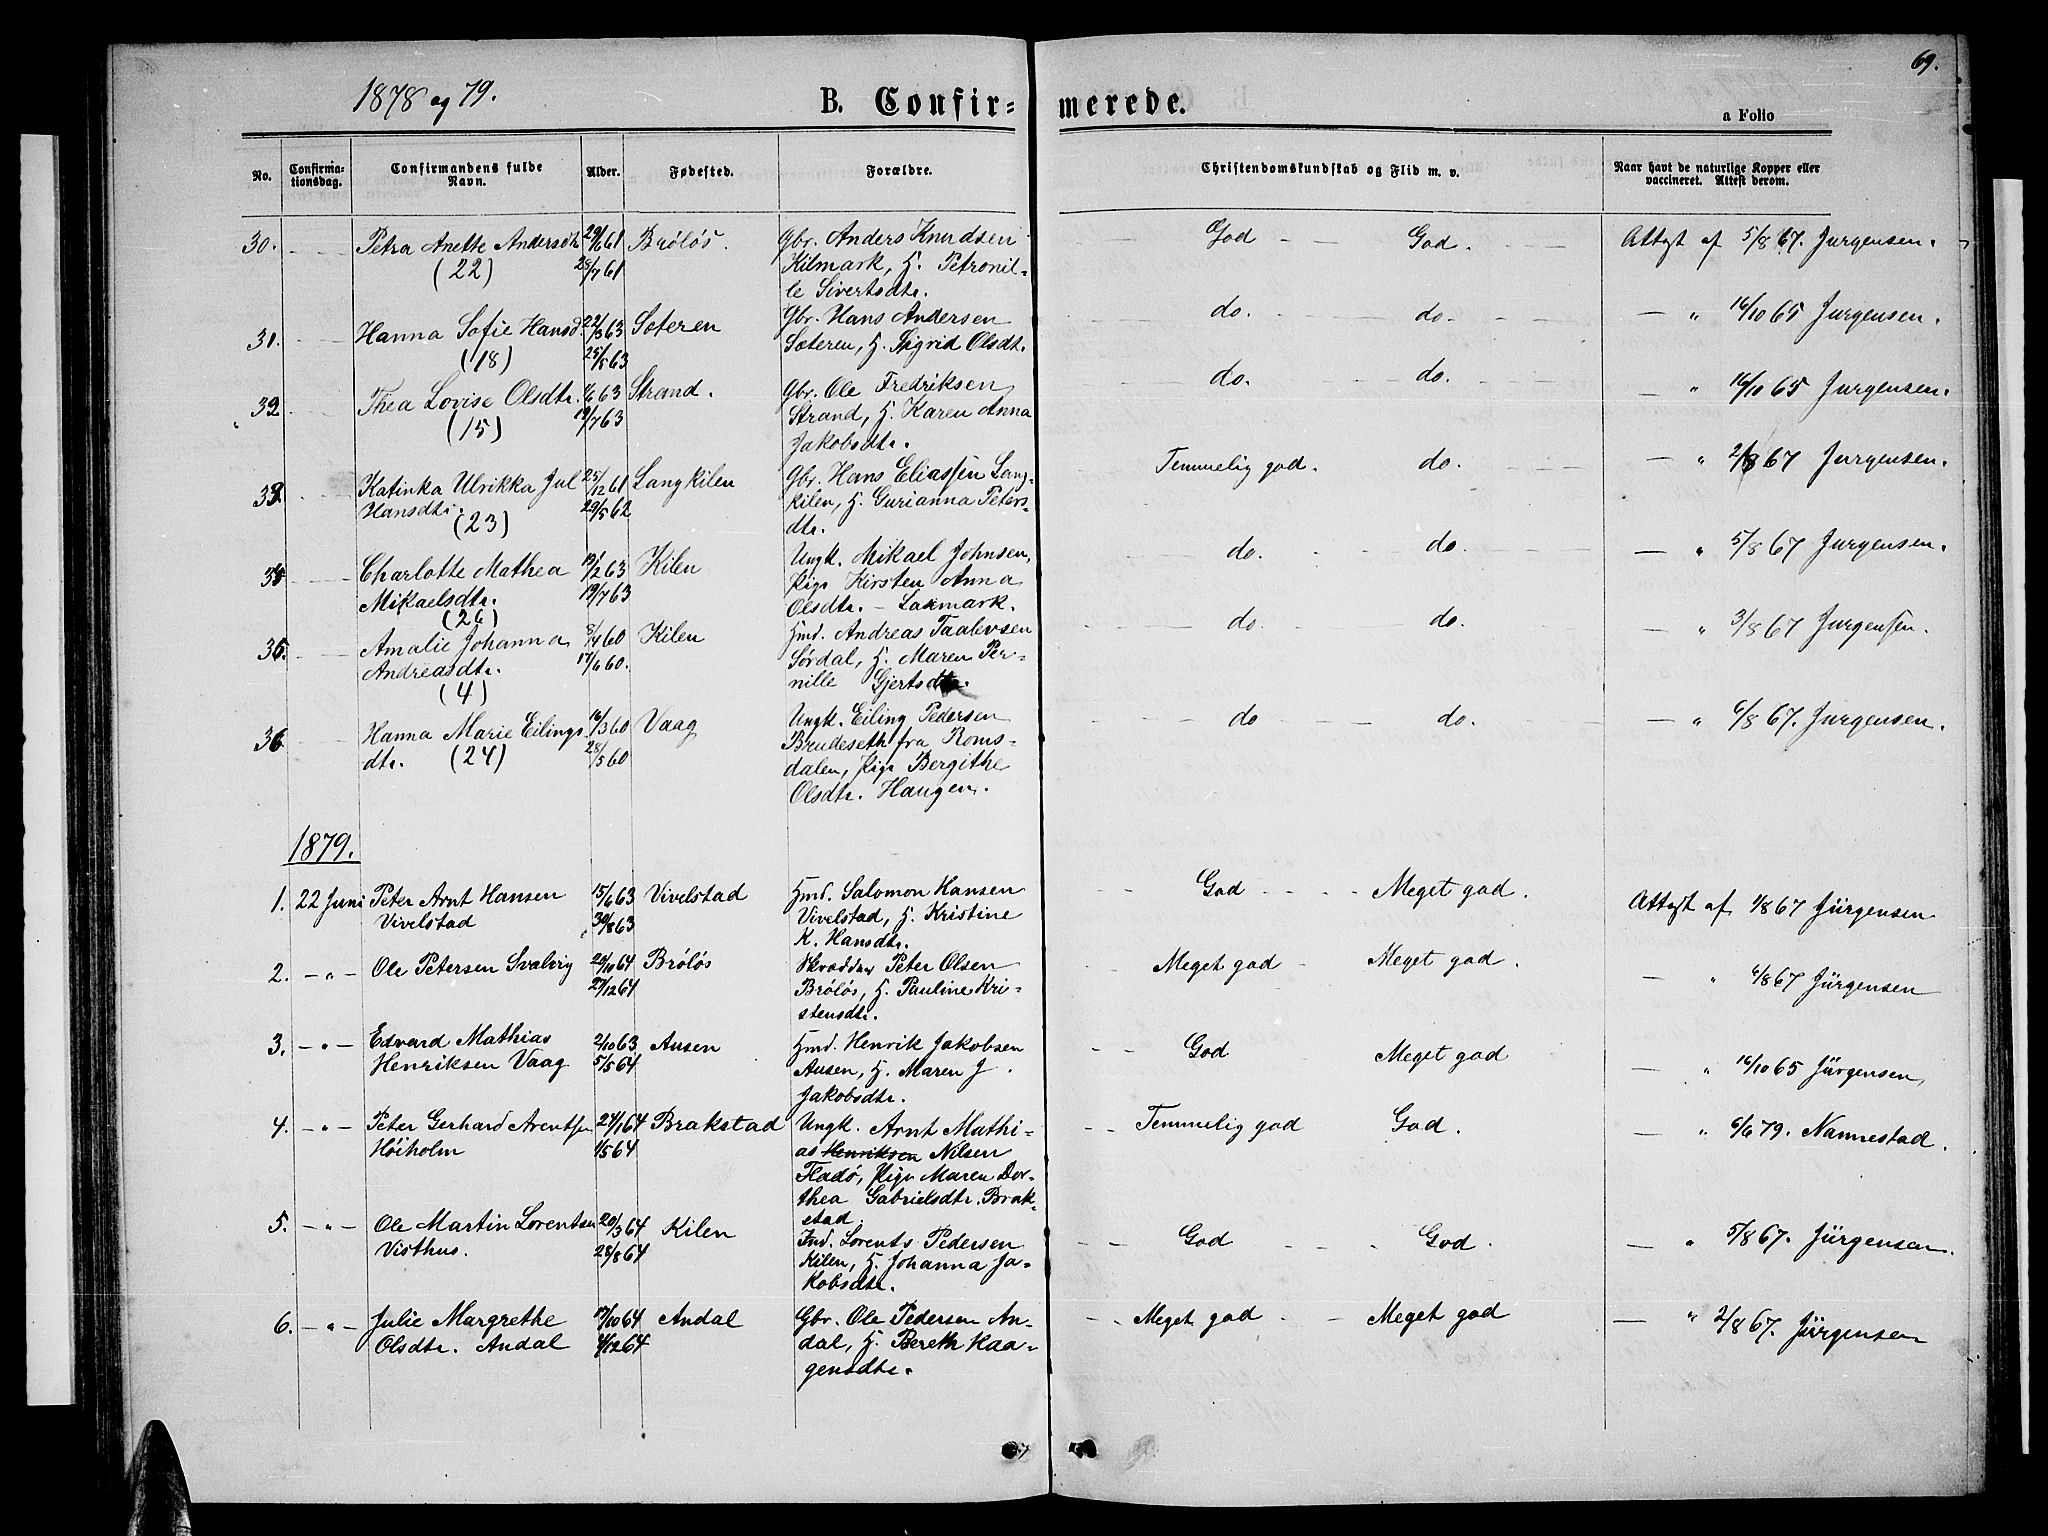 69.
1878 og 79.
B. Confirmerede.
a Folio
No.
Confirmationsdag.
Confirmandens fulde Navn.
Alder.
Fødested.
Forældre.
Christendomskundskab og Flid m. v.
Naar havt de naturlige Kopper eller vaccineret. Attest derom.
30. Petra Anette Andersdtr 29/6 61 Brøløs. Gbr. Anders Knudsen God God. Attest af 5/8 67. Jurgensen.
(22) 28/7 61 Kilmark, H. Petronil-
le Sivertsdtr.
31. Hanna Sofie Hansd. 22/3 63 Sæteren Gbr. Hans Andersen do. do. — " 16/10 65 Jurgensen.
(18) 25/5 63 Sæteren, H. Sigrid Olsdt.
32 Thea Lovise Olsdtr. 1/6 63 Strand. Gbr. Ole Fredriksen do. do. — " 16/10 65 Jurgensen.
(15) 19/7 63 Strand, H. Karen Anna
Jakobsdtr.
33. Katinka Ulrikka Jul 25/12 61 Langkilen Gbr. Hans Eliassen Lang- Temmelig god. do. — " 2/8 67 Jurgensen.
Hansdtr. (23) 29/5 62 kilen, H. Gurianna Peters-
dtr.
34 Charlotte Mathea 19/2 63 Kilen Ungk. Mikael Johnsen, do. do. — " 5/8 67 Jurgensen.
Mikaelsdtr. 19/7 63 Pige Kirsten Anna
(26) Olsdtr. - Laxmark.
35. Amalie Johanna 8/4 60 Kilen Hmd. Andreas Taalevsen do. do. — " 3/8 67 Jurgensen.
Andreasdtr. 17/6 60. Sørdal, H. Maren Per-
(4) nille Gjertsdtr.
36 Hanna Marie Eilings 16/3 60 Vaag Ungk. Eiling Pedersen do do. — " 6/8 67. Jurgensen.
dtr. (24) 28/5 60 Brudeseth fra Roms-
dalen, Pige Bergithe
Olsdtr. Haugen.
1879.
1. 22 Juni Peter Arnt Hansen 15/6 63 Vivelstad Hmd. Salomon Hansen God Meget god. Attest af 1/8 67 Jürgensen
Vivelstad 30/8 63 Vivelstad, H. Kristine
K. Hansdtr.
2. — " — Ole Petersen Svalvig 29/10 64 Brøløs Skrædder Peter Olsen Meget god Meget god. — " 6/8 67 Jürgensen
27/12 64 Brøløs, H. Pauline Kri-
stensdtr.
3. — " — Edvard Mathias 2/10 63 Ausen Hmd. Henrik Jakobsen God Meget god — " 16/10 65 Jürgensen
Henriksen Vaag 5/5 64 Ausen, H. Maren J.
Jakobsdtr.
4. — " — Peter Gerhard Arentsen 24/1 64 Brakstad Ungk. Arnt Mathi- Temmelig god God. — " 6/6 79. Nannestad.
Høiholm 1/5 64 as Henriksen Nilsen
Fladø, Pige Maren Dor-
thea Gabrielsdtr. Brak-
stad
5. — " — Ole Martin Lorentsen 20/3 64 Kilen Ind. Lorents Pedersen God God. — " 5/8 67. Jürgensen.
Visthus. 28/8 64 Kilen, H. Johanna Ja-
kobsdtr.
6. — " — Julie Margrethe 17/10 64 Andal Gbr. Ole Pedersen An- Meget god Meget god — " 2/8 67. Jürgensen
Olsdtr. Andal 4/12 64 dal, H. Bereth Haa-
gensdtr.